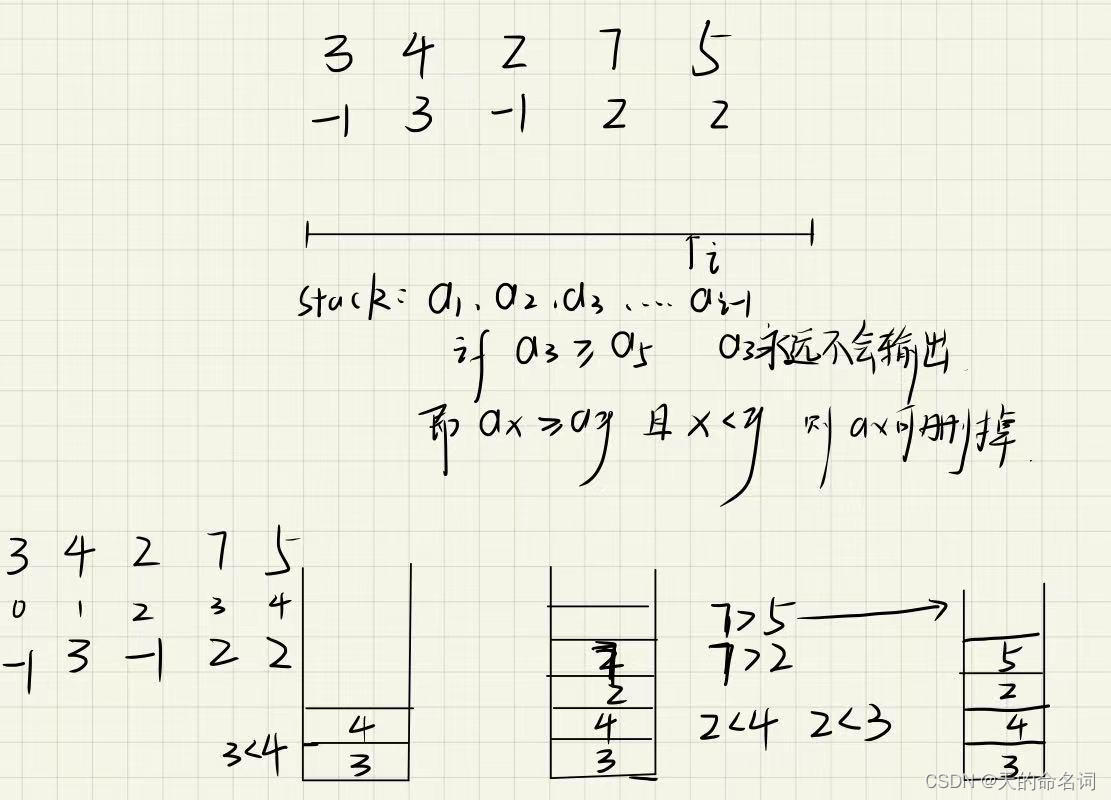 3 4 2 7 5
-1 3 -1 2 2
i
stack: a1、a2、a3 .... ai-1
if a3 ≥ a5 a3永远不会输出.
即 ax ≥ ay 且 x < y 则 ax可删掉.
3 4 2 7 5
0 1 2 3 4
-1 3 -1 2 2
3<4
4
3
2
4
3
7>5
7>2
2<4 2<3
5
2
4
3
CSDN @天的命名词